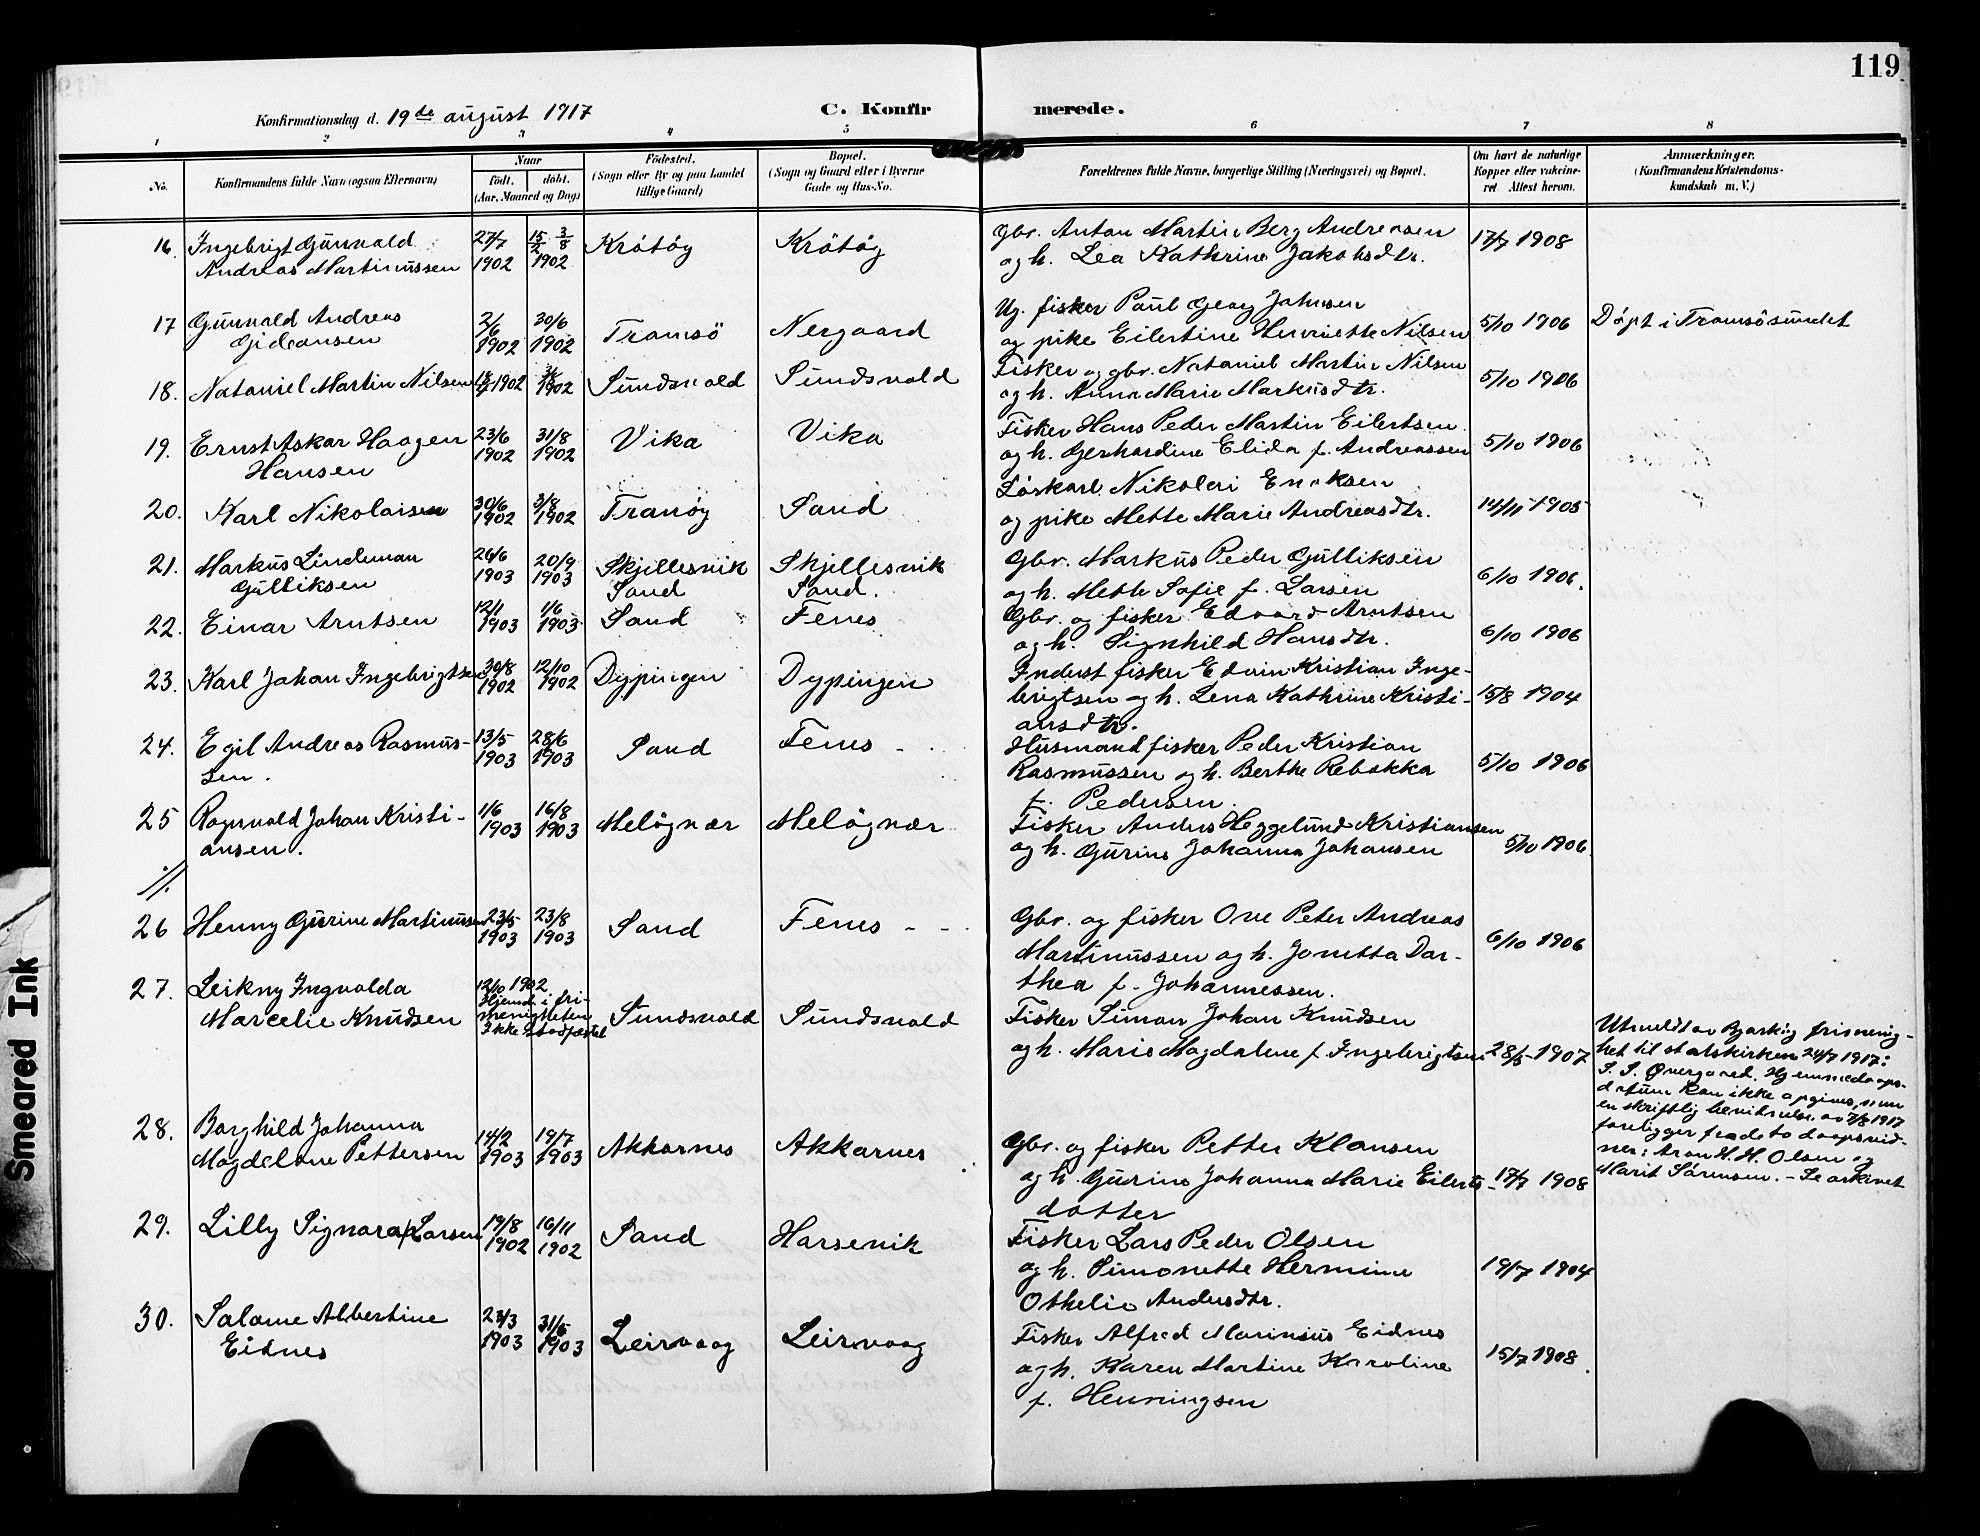 119
Konfirmationsdag d. 19de august 1917
C. Konfir merede.
1 2 3 4 5 6 7 8
No.
Konfirmandens fulde Navn (ogsaa Efternavn)
Naar
födt. döbt.
(Aar, Maaned og Dag)
Födested.
(Sogn eller By og paa Landet
tillige Gaard)
Bopæl.
(Sogn og Gaard eller i Byerne
Gade og Hus-No.
Forældrenes fulde Navne, borgerlige Stilling (Næringsvei) og Bopæl.
Om havt de naturlige
Kopper eller vakcine-
ret. Attest herom.
Anmærkninger.
(Konfirmandens Kristendoms-
kundskab m. V.)
16. Ingebrigt Gunvald 27/7 15/2 3/8 Krötöy Krötöy Gbr. Anton Martin Berg Andreasen 17/7 1908
Andreas Martinussen 1902 1902 og h. Lea Kathrine Jakobsdtr.
17 Gunvald Andreas 2/6 30/6 Tromsö Nergaard Ug. fisker Paul Georg Johnsen 5/10 1906 Döpt i Tromsösundet
Gideonsen 1902 1902 og pike Eilertine Henriette Nilsen
18. Nataniel Martin Nilsen 1902 1902 Sundsvold Sundsvold Fisker og gbr. Nataniel Martin Nilsen 5/10 1906
og h. Anna Marie Markusdtr.
19. Ernst Askar Haagen 23/6 31/8 Vika Vika Fisker Hans Peder Martin Eilertsen
Hansen 1902 1902 og h. Gerhardine Elida f. Andreassen 5/10 1906
20. Karl Nikolaisen 30/6 3/8 Tranöy Sand Löskarl Nikolai Enoksen
1902 1902 og pike Mette Marie Andreasdtr. 14/11 1905
21. Markus Lindeman 26/6 20/9 Skjellesvik Skjellesvik Gbr. Markus Peder Gulliksen
Gulliksen 1903 1903 Sand Sand. og h. Mette Sofie f. Larsen 6/10 1906.
22. Einar Arntsen 12/1 1/6 Sand Fenes Gbr. og fisker Edvard Arntsen
1903 1903 og h. Signhild Hansdtr. 6/10 1906
23. Karl Johan Ingebrigtsen 30/8 12/10 Dypingen Dypingen Inderst fisker Edvin Kristian Inge-
1902 1902 brigtsen og h. Lena Kathrine Kristi- 15/8 1904
ansdtr.
24. Egil Andreas Rasmus- 13/5 28/6 Sand Fenes - Husmand fisker Peder Kristian
sen. 1903 1903 Rasmussen og h. Berthe Rebekka 5/10 1906
f. Pedersen.
25 Ragnvald Johan Kristi- 1/6 16/8 Melöyvær Melöyvær Fisker Anders Heggelund Kristiansen
ansen. 1903 1903 og h. Gurine Johanna Johansen 5/10 1906.
%
26 Henny Gurine Martinussen 23/5 23/8 Sand Fenes - - Gbr. og fisker Ove Peter Andreas
1903 1903 Martinussen og h. Jonetta Dor- 6/10 1906
thea f. Johannessen.
27. Leikny Ingvalda 12/10 1902 Sundsvold Sundsvold Fisker Simon Johan Knudsen
Marcelie Knudsen Hjemd. i fri-
menigheten
Ikke stadfæstet
og h. Marie Magdalene f. Ingebrigtsen 28/5 1907
Utmeldt av Bjarköy frimenig-
het til statskirken 24/7 1917:
S. S. Övergaard. Hjemmedaaps-
datum kan ikke opgives, men
en skriftlig bevitnelse av 7/8 1917
foreligger fra de to daapsvid-
ner: Aron H. H. Olsen og
Marit Sörensen. - Se arkivet
28. Borghild Johanna 14/2 19/7 Akkarnes Akkarnes Gbr. og fisker Petter Klausen
Magdelone Pettersen 1903 1903 og h. Gurine Johanna Marie Eilerts- 17/7 1908
datter
29. Lilly Signora Larsen 19/8 16/11 Sand Harsevik Fisker Lars Peder Olsen
1902 1902 og h. Simonette Hermine 19/7 1904
Othelie Andersdtr.
30. Salome Albertine 23/3 31/5 Leirvaag Leirvaag Fisker Alfred Marinius Eidnes
Eidnes 1903 1903 og h. Karen Martine Karoline 15/7 1908.
f. Henningsen
Smeared Ink